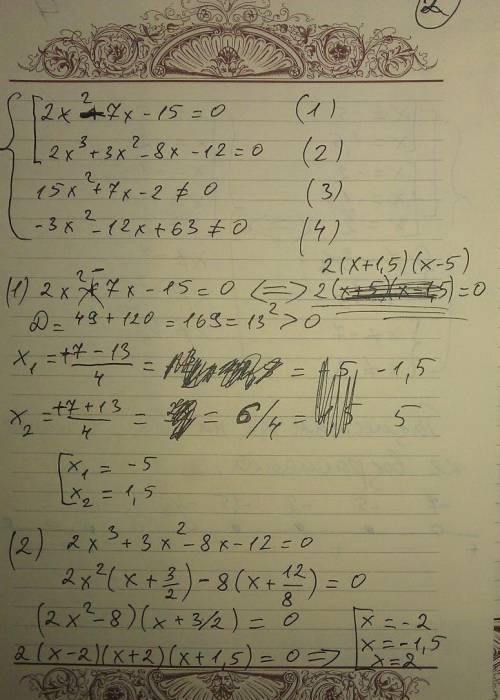 2
2x² - 7x - 15 = 0 (1)
2x³ + 3x² - 8x - 12 = 0 (2)
15x² + 7x - 2 ≠ 0 (3)
-3x² - 12x + 63 ≠ 0 (4)
2(x+1,5)(x-5)
(1) 2x² - 7x - 15 = 0 <=> 2(x+5)(x-1,5) = 0
D = 49 + 120 = 169 = 13² > 0
x₁ = +7-13/4 = = -1,5
x₂ = +7+13/4 = = 6/4 = 5
x₁ = -5
x₂ = 1,5
(2) 2x³ + 3x² - 8x - 12 = 0
2x²(x + 3/2) - 8(x + 12/8) = 0
(2x² - 8)(x + 3/2) = 0
2(x-2)(x+2)(x+1,5) = 0 =>
x = -2
x = -1,5
x = 2